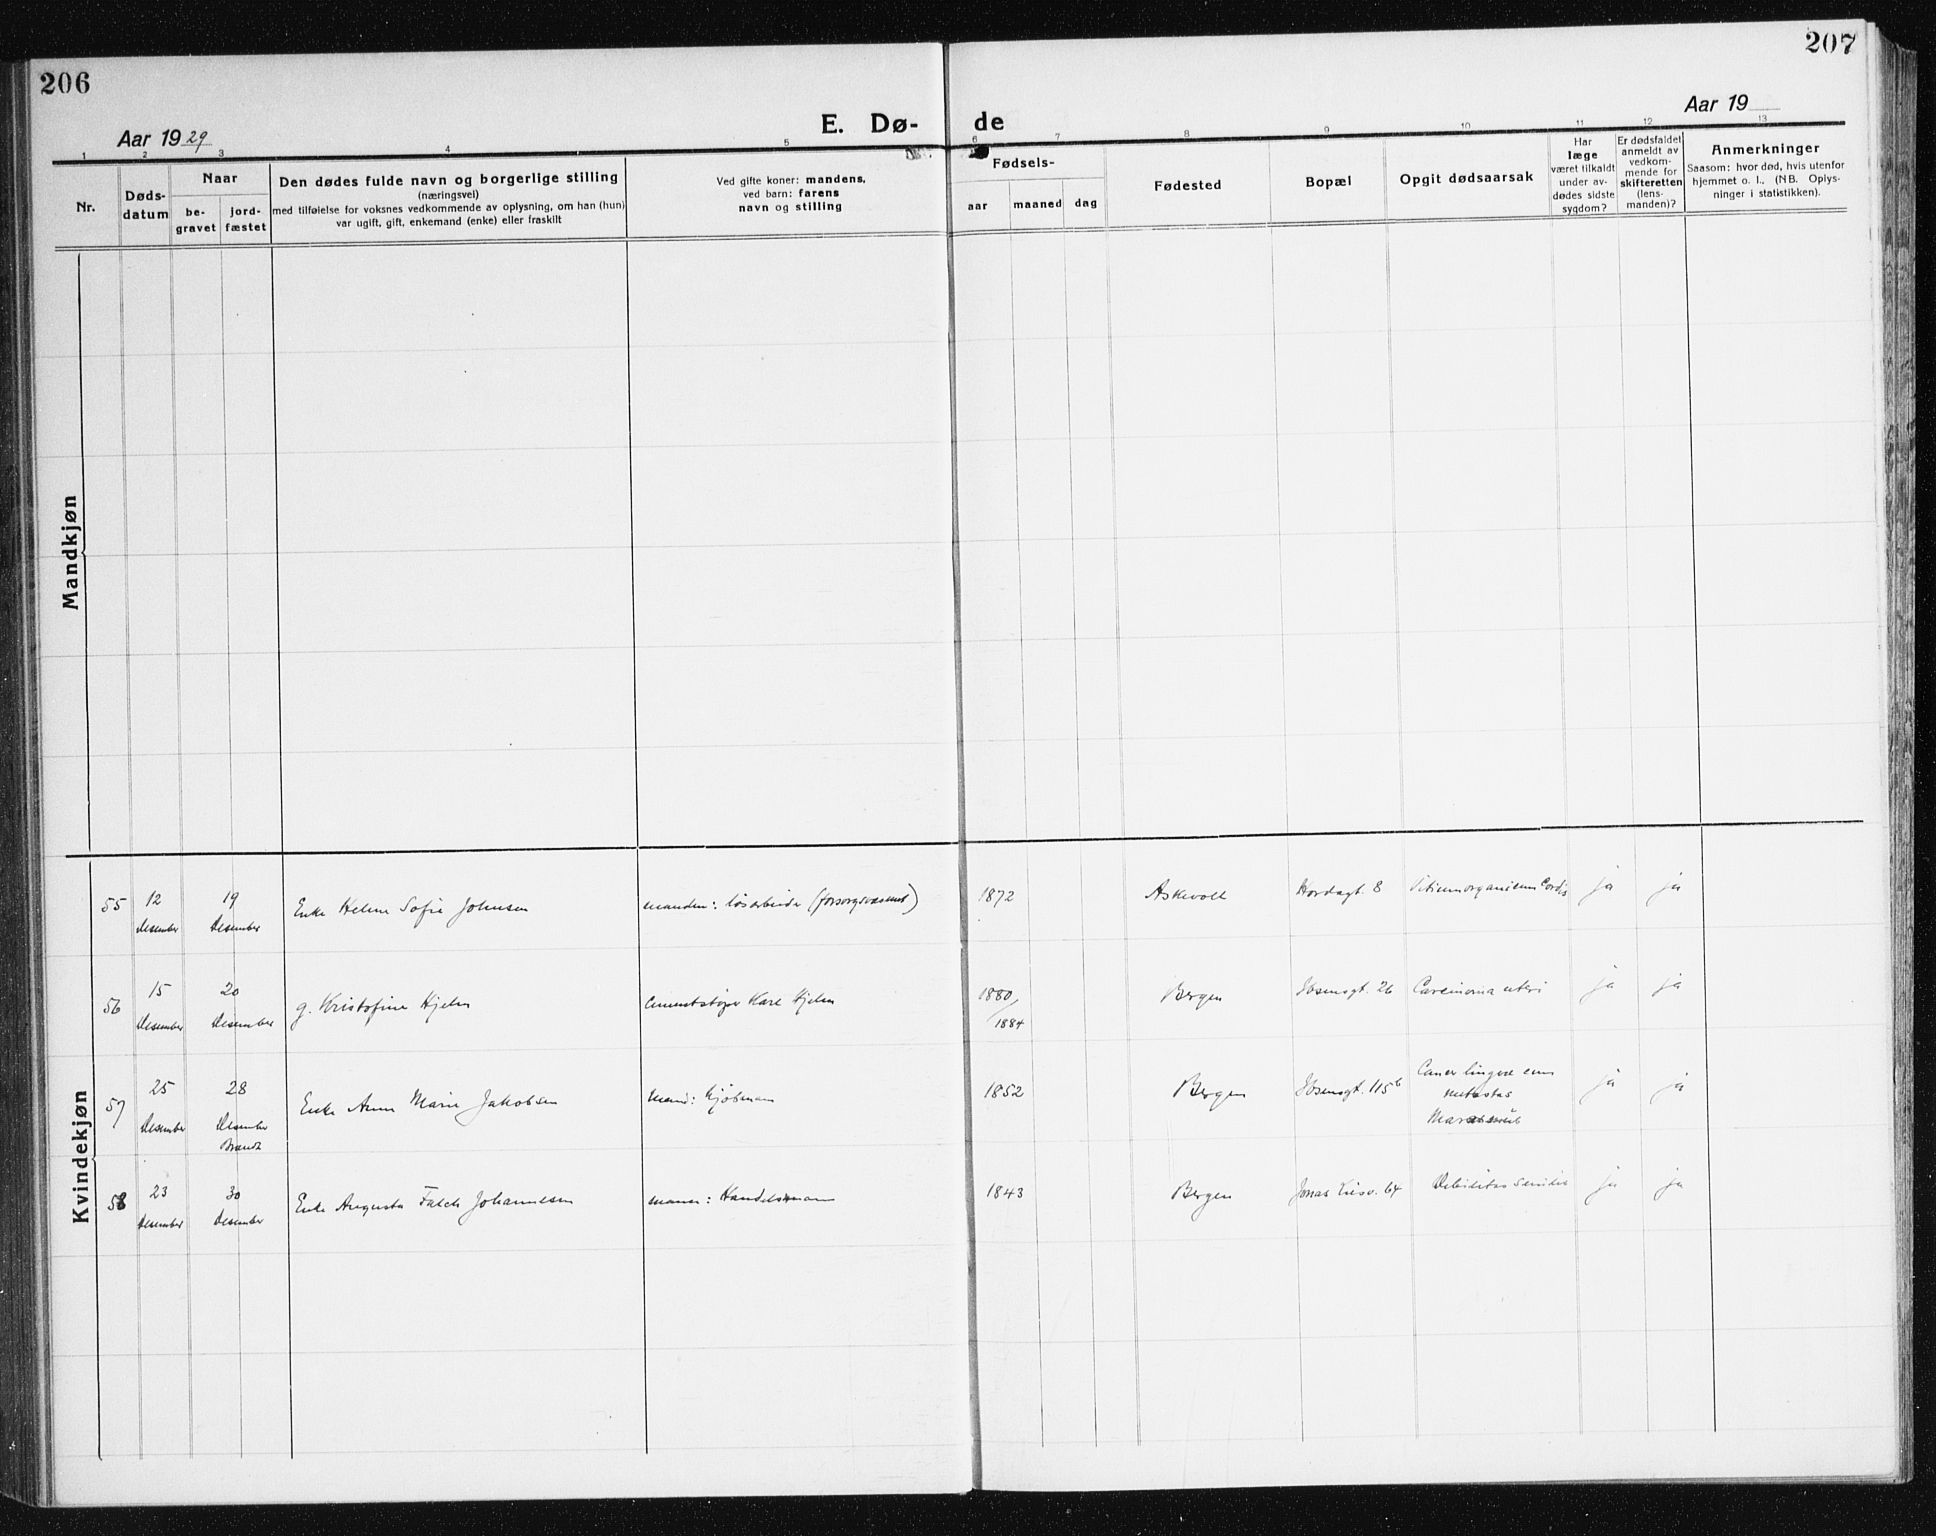 206
207
Aar 1929
E. Dø-
de
Aar 19
1 2 3 4 5 6 7 8 9 10 11 12 13
Nr.
Døds-
datum
Naar
be-
gravet
jord-
fæstet
Den dødes fulde navn og borgerlige stilling
(næringsvei)
med tilføielse for voksnes vedkommende av oplysning, om han (hun)
var ugift, gift, enkemand (enke) eller fraskilt
Ved gifte koner: mandens,
ved barn: farens
navn og stilling
Fødsels-
aar
maaned
dag
Fødested
Bopæl
Opgit dødsaarsak
Har
læge
været tilkaldt
under av-
dødes sidste
sygdom?
Er dødsfaldet
anmeldt av
vedkom-
mende for
skifteretten
(lens-
manden)?
Anmerkninger
Saasom: hvor død, hvis utenfor
hjemmet o. l., (NB. Oplys-
ninger i statistikken).
Mandkjøn
Kvindekjøn
55 12 19 Enke Helene Sofie Johnsen manden: løsarbeider (forsorgsvæsenet) 1872 Askevoll Hordagt. 8 Vitium organicum Cordis ja ja
Desember Desember
56 15 20 g. Kristofine Hjelm Cementstøper Karl Hjelm 1880/ Bergen Ibsensgt. 26 Carcinoma uteri ja ja
Desember Desember 1884
57 25 28 Enke Anna Marie Jakobsen mand: kjøbmann 1852 Bergen Ibsensgt. 115b Cancer lingvæ cum ja ja
Desember Desember metastas
Brandt
58 23 30 Enke Augusta Falch Johannesen mann: Handelsmann 1843 Bergen Jonas Liesv. 64 Debilitas senilis ja ja
Desember Desember